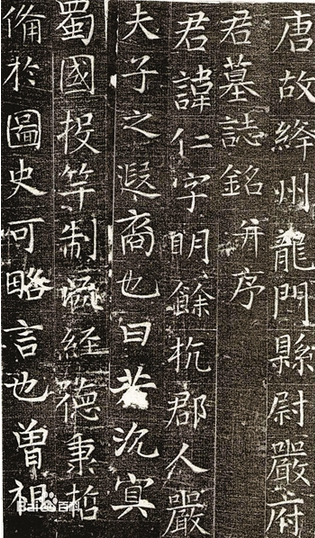 唐故絳州龍門縣尉嚴府
君墓誌銘并序
君諱仁字明餘杭郡人嚴
夫子之遐裔也曰若沉冥
蜀國投竿制經德秉哲
備於圖史可略言也曾祖
Baidu百科